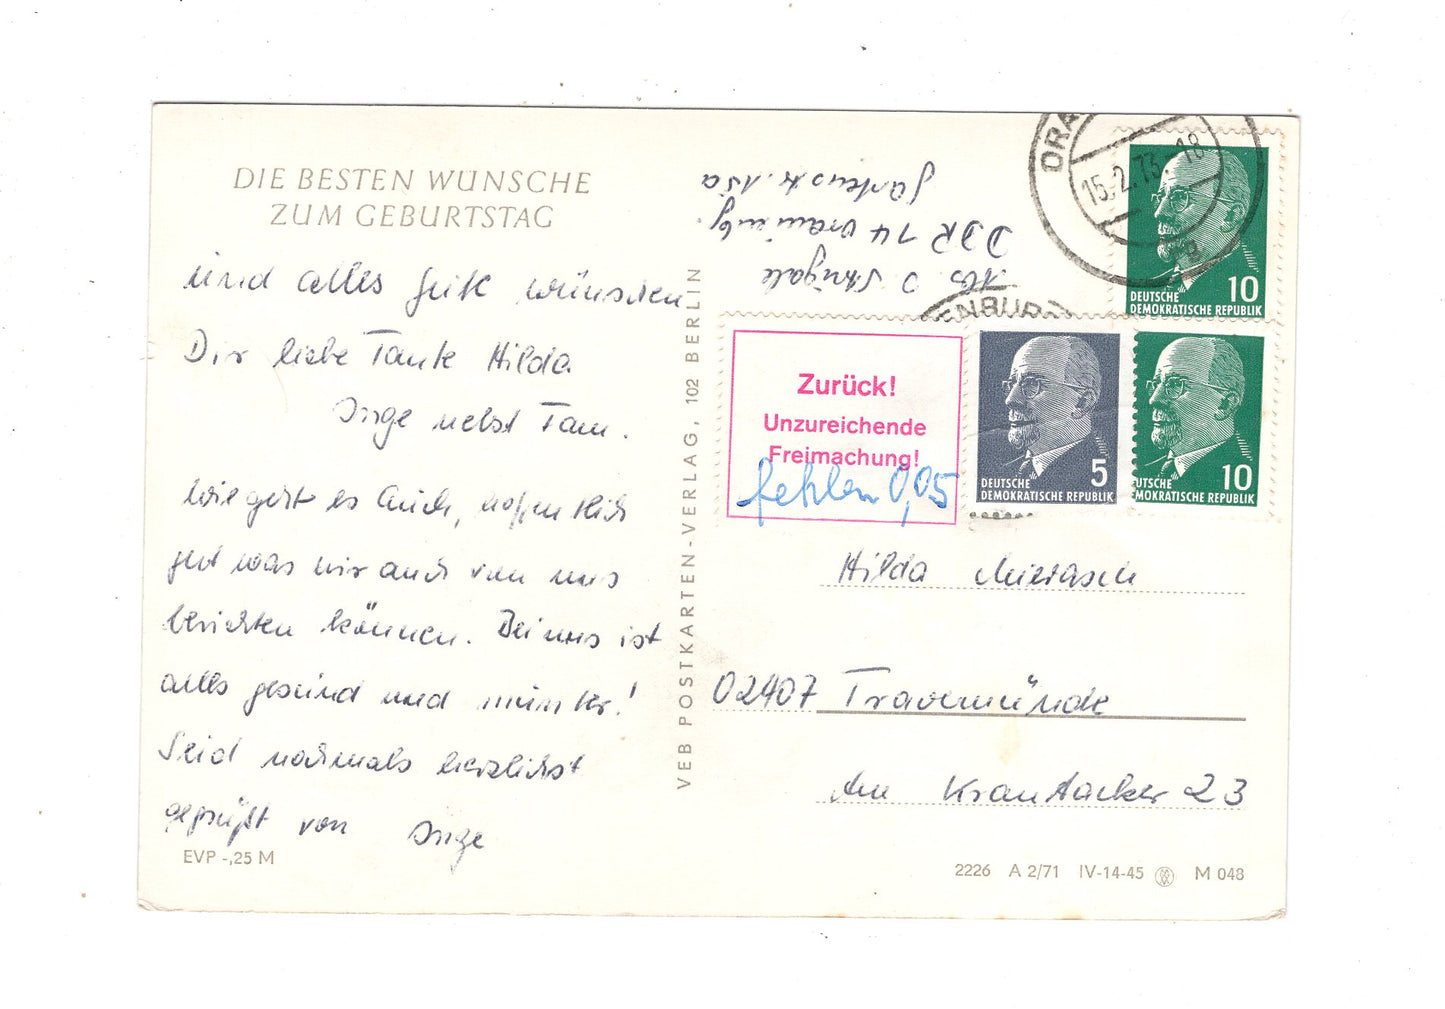 DIE BESTEN WÜNSCHE
ZUM GEBURTSTAG
und alles Gute wünschen
Dir liebe Tante Hilda
Inge nebst Fam.
Wie geht es Euch, hoffentlich
gut was wir auch von uns
berichten können. Bei uns ist
alles gesund und munter!
Seid nochmals herzlichst
gegrüßt von Inge
EVP -,25 M
VEB POSTKARTEN-VERLAG, 102 BERLIN
Abs
DDR 14
Gartenstr. 15a
ORA
15.2.73-18
ENBURG
DEUTSCHE
DEMOKRATISCHE REPUBLIK
10
Zurück!
Unzureichende
Freimachung!
fehlen 0,05
5
DEUTSCHE
DEMOKRATISCHE REPUBLIK
10
UTSCHE
MOKRATISCHE REPUBLIK
Hilda
02407 Travemünde
Am Krautacker 23
2226 A 2/71 IV-14-45 M 048